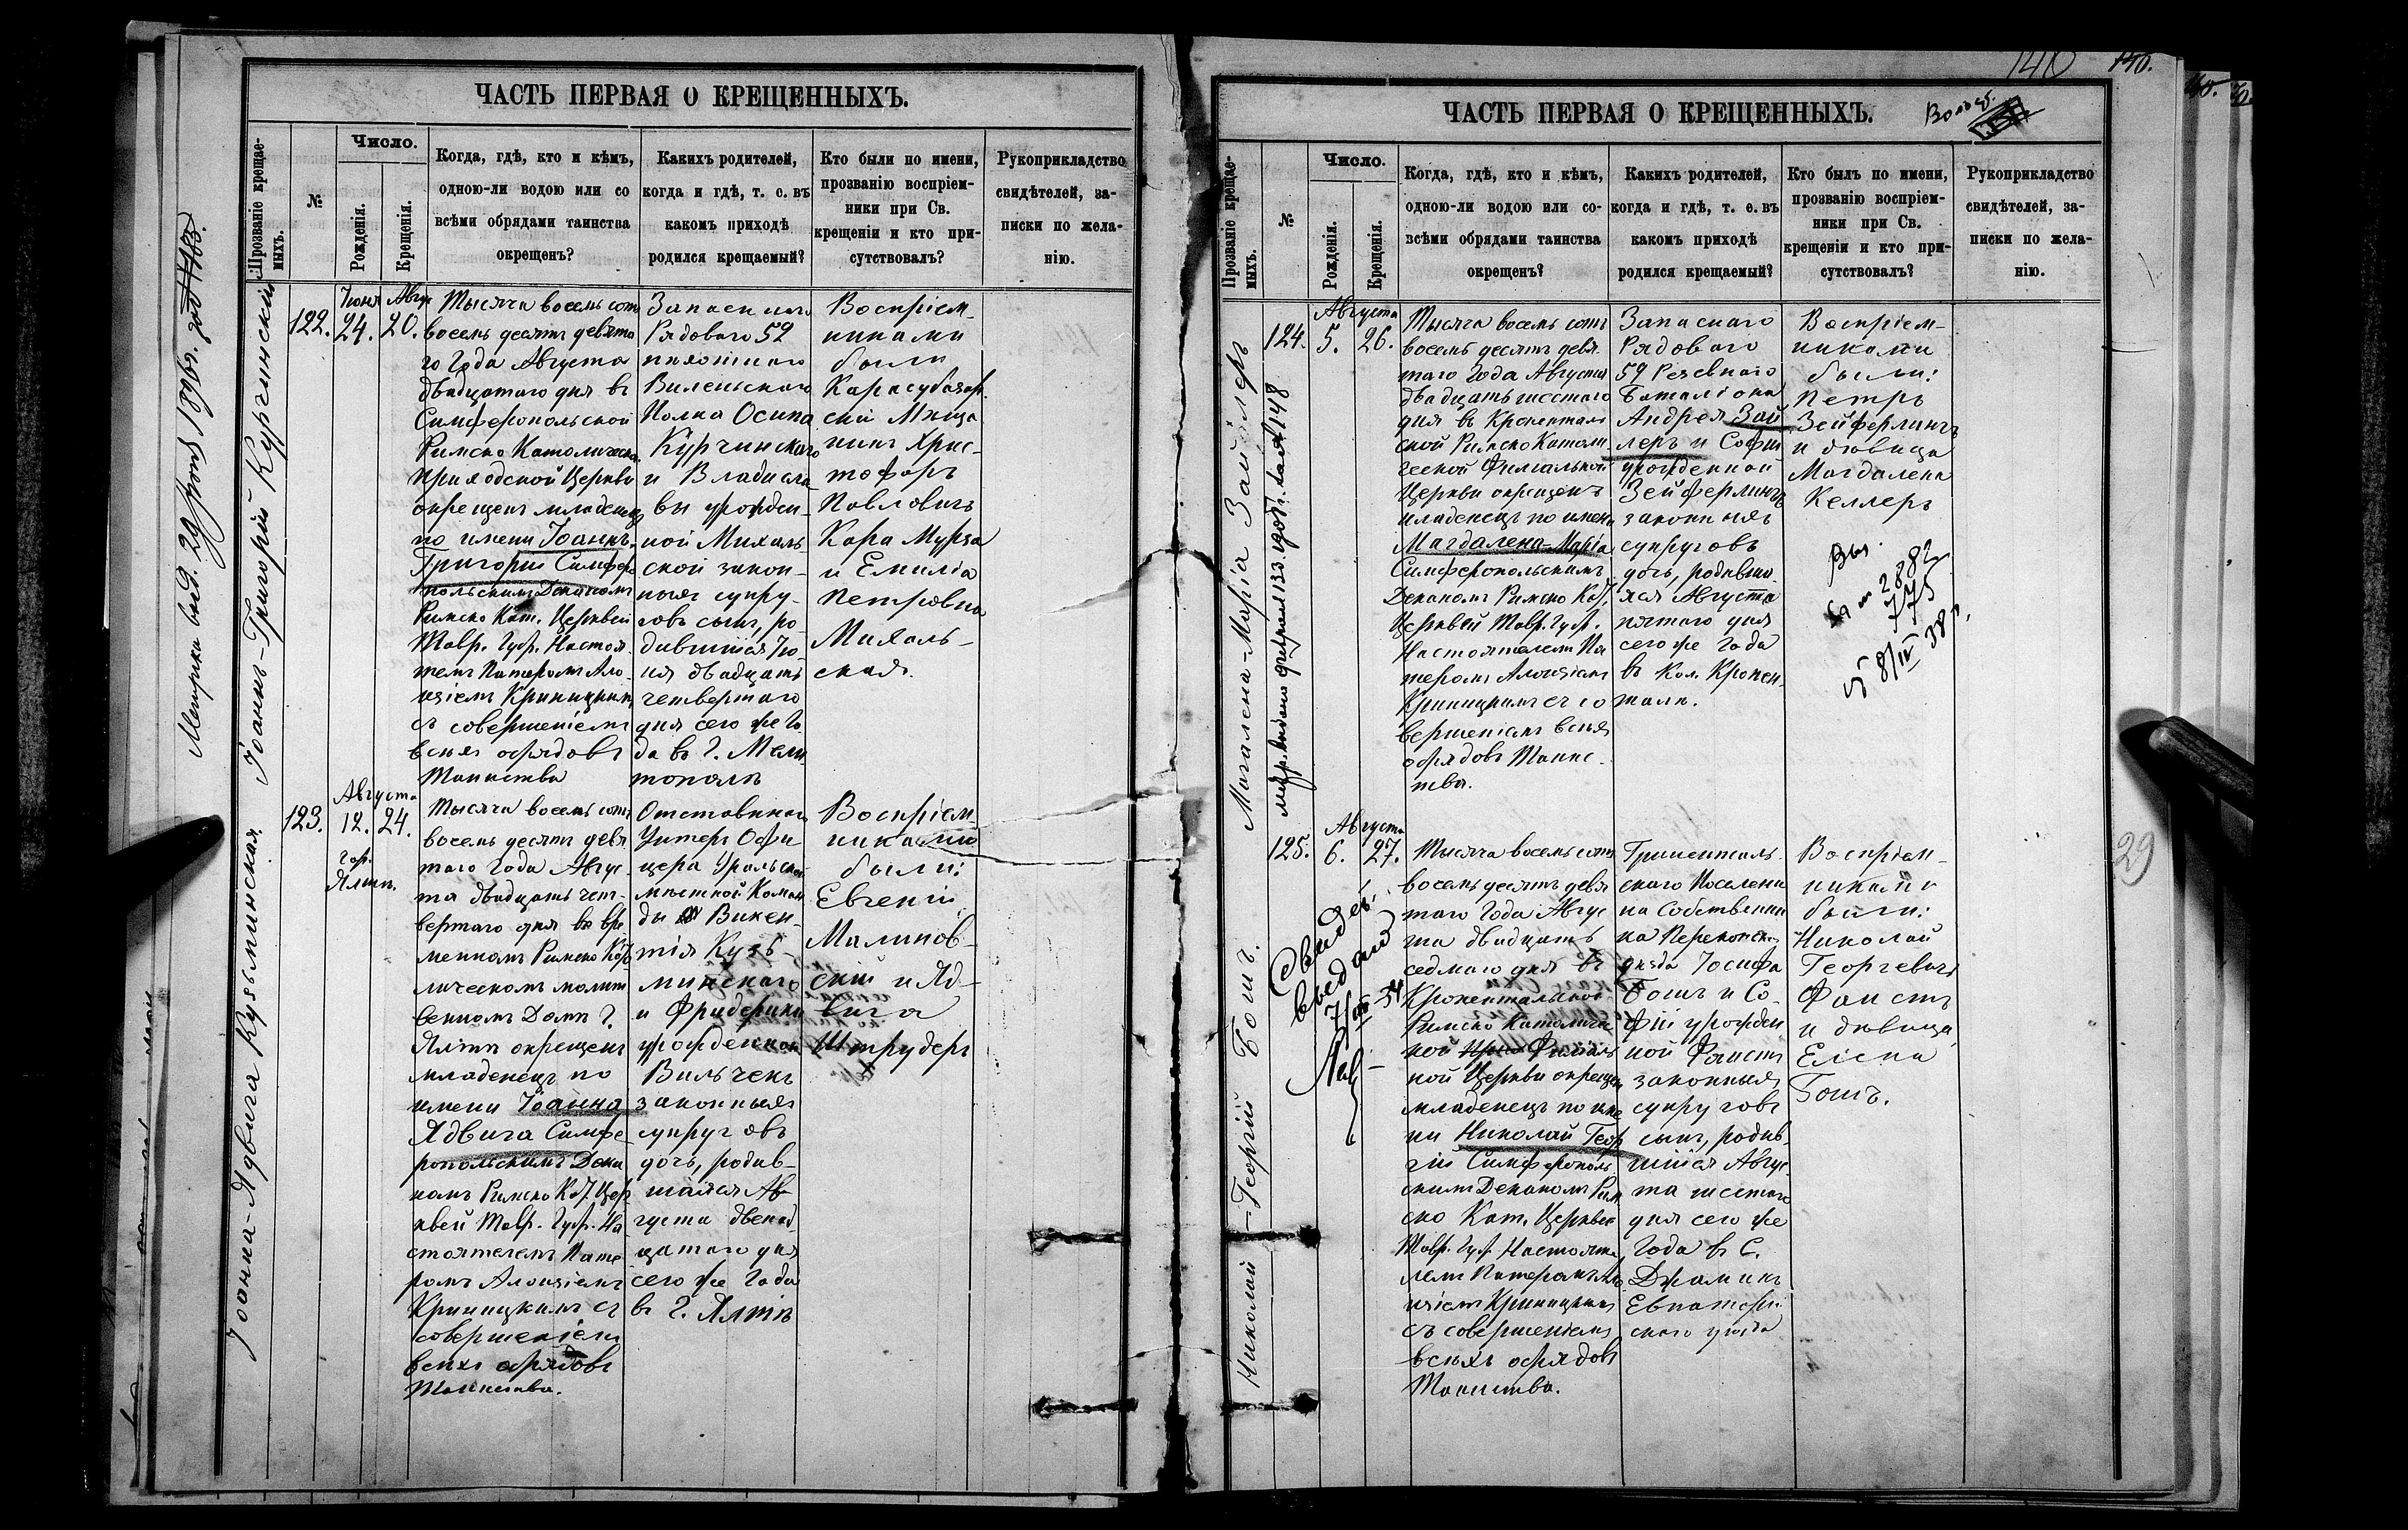 ЧАСТЬ ПЕРВАЯ О КРЕЩЕННЫХЪ.
Прозваніе крещае-
мыхъ.
№
Число.
Рожденія.
Крещенія.
Когда, гдѣ, кто и кѣмъ,
одною-ли водою или со
всѣми обрядами таинства
окрещенъ?
Какихъ родителей,
когда и гдѣ, т. е. въ
какомъ приходѣ
родился крещаемый?
Кто были по имени,
прозванію воспріем-
ники при Св.
крещеніи и кто при-
сутствовалъ?
Рукоприкладство
свидѣтелей, за-
писки по жела-
нію.
Метрика выд. 29
1896г.
Іоаннъ-Григорій Курчинскій
122.
Іюня
24.
Авгус
20.
Тысяча восемь сотъ
восемь десятъ девята
го Года Августа
двадцатаго дня въ
Симферопольской
Римско Католическ.
приходской Церкви
окрещенъ младенецъ
по имени Іоаннъ-
Григорій Симферо
польскимъ Деканомъ
Римско Кат. Церквей
Тавр. Губ. Настоя
телемъ Патеромъ Ало
изіемъ Криницкимъ
съ совершеніемъ
всѣхъ обрядовъ
Таинства
Запаснаго
Рядоваго 52
пѣхотнаго
Виленскаго
Полка Осипа
Курчинскаго
и Владисла
вы урожден-
ной Михаль
ской закон-
ныхъ супру-
говъ сынъ, ро
дившійся Ію
ня двадцать
четвертаго
дня сего же Го
да въ г. Мели
тополѣ
Воспріем-
никами
были
Карасубазар.
скій Мѣща
нинъ Хрис-
тофоръ
Павловичъ
Кара Мурза
и Емилія
Петровна
Михаль-
ская.
Іоанна-Ядвига Кузьминская.
123.
Августа
12. 24.
гор.
Ялта.
Тысяча восемь сотъ
восемь десятъ девя
таго Года Авгус
та двадцать чет-
вертаго дня во вре
менномъ Римско Като
лическомъ молит
венномъ Домѣ г.
Ялтѣ окрещенъ
младенецъ по
имени Іоанна
Ядвига Симфе-
ропольскимъ Дека
номъ Римско Кат. Цер
квей Тавр. Губ. На
стоятелемъ Пате
ромъ Алоизіемъ
Криницкимъ съ
совершеніемъ
всѣхъ обрядовъ
Таинства.
Отставнаго
Унтеръ Офи
цера Уральской
мѣстной Коман
ды Викен-
тія Кузь-
минскаго
и Фридерики
урожденной
Вильчекъ
законныхъ
супруговъ
дочь, родив-
шаяся Ав-
густа двенад
цатаго дня
сего же Года
въ г. Ялтѣ
Воспріем-
никами
были:
Евгеній
Малинов-
скій и Яд-
вига
Штрудеръ
140
140.
ЧАСТЬ ПЕРВАЯ О КРЕЩЕННЫХЪ.
Прозваніе крещае-
мыхъ.
№
Число.
Рожденія.
Крещенія.
Когда, гдѣ, кто и кѣмъ,
одною-ли водою или со-
всѣми обрядами таинства
окрещенъ?
Какихъ родителей,
когда и гдѣ, т. е. въ
какомъ приходѣ
родился крещаемый?
Кто былъ по имени,
прозванію воспріем-
ники при Св.
крещеніи и кто при-
сутствовалъ?
Рукоприкладство
свидѣтелей, за-
писки по жела-
нію.
Магдалена-Марія Зайлеръ
124.
Августа
5. 26.
Тысяча восемь сотъ
восемь десятъ девя
таго Года Августа
двадцать шестаго
дня въ Кроненталь
ской Римско Католи
ческой Филіальной
Церкви окрещенъ
младенецъ по имени
Магдалена-Марія
Симферопольскимъ
Деканомъ Римско Кат.
Церквей Тавр. Губ.
Настоятелемъ Па
теромъ Алоизіемъ
Криницкимъ съ со
вершеніемъ всѣхъ
обрядовъ Таинс-
тва.
Запаснаго
Рядоваго
59 Резевнаго
Баталіона
Андрея Зай
леръ и Софіи
урожденной
Зейферлингъ
законныхъ
супруговъ
дочь, родивша-
яся Августа
пятаго дня
сего же Года
въ Кол. Кронен-
талѣ.
Воспріем-
никами
были:
Петръ
Зейферлингъ
и дѣвица
Магдалена
Келлеръ
2882
Николай-Георгій Гошъ.
125.
Августа
6. 27.
Свидѣ.
выдано
Тысяча восемь сотъ
восемь десятъ девя
таго Года Авгус
та двадцать
седмаго дня въ
Кронентальской
Римско Католиче
кой Филіаль
ной Церкви окрещен
младенецъ по име
ни Николай Геор
гій Симферополь
скимъ Деканомъ Рим
ско Кат. Церквей
Тавр. Губ. Настояте
лемъ Патеромъ Ало
изіемъ Криницкимъ
съ совершеніемъ
всѣхъ обрядовъ
Таинства.
скаго Поселени
на Собственни
ка Перекопск.
уѣзда Іосифа
Гошъ и Со-
фіи урожден
ной Фаистъ
законныхъ
супруговъ
сынъ, родив
шійся Авгус
та шестаго
дня сего же
Года въ С.
Джаминъ
Евпаторій
скаго уѣзда
Воспріем-
никами
были:
Николай
Георгевичъ
Фаистъ
и дѣвица
Елена
Гошъ.
29